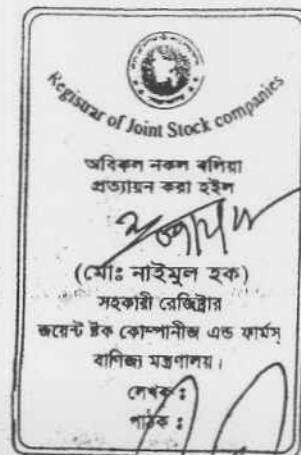 Registrar of Joint Stock companies
অবিকল নকল বলিয়া
প্রত্যায়ন করা হইল
(মোঃ নাইমুল হক)
সহকারী রেজিষ্ট্রার
জয়েন্ট ষ্টক কোম্পানীজ এন্ড ফার্মস্
বাণিজ্য মন্ত্রণালয়।
লেখক :
পাঠক :